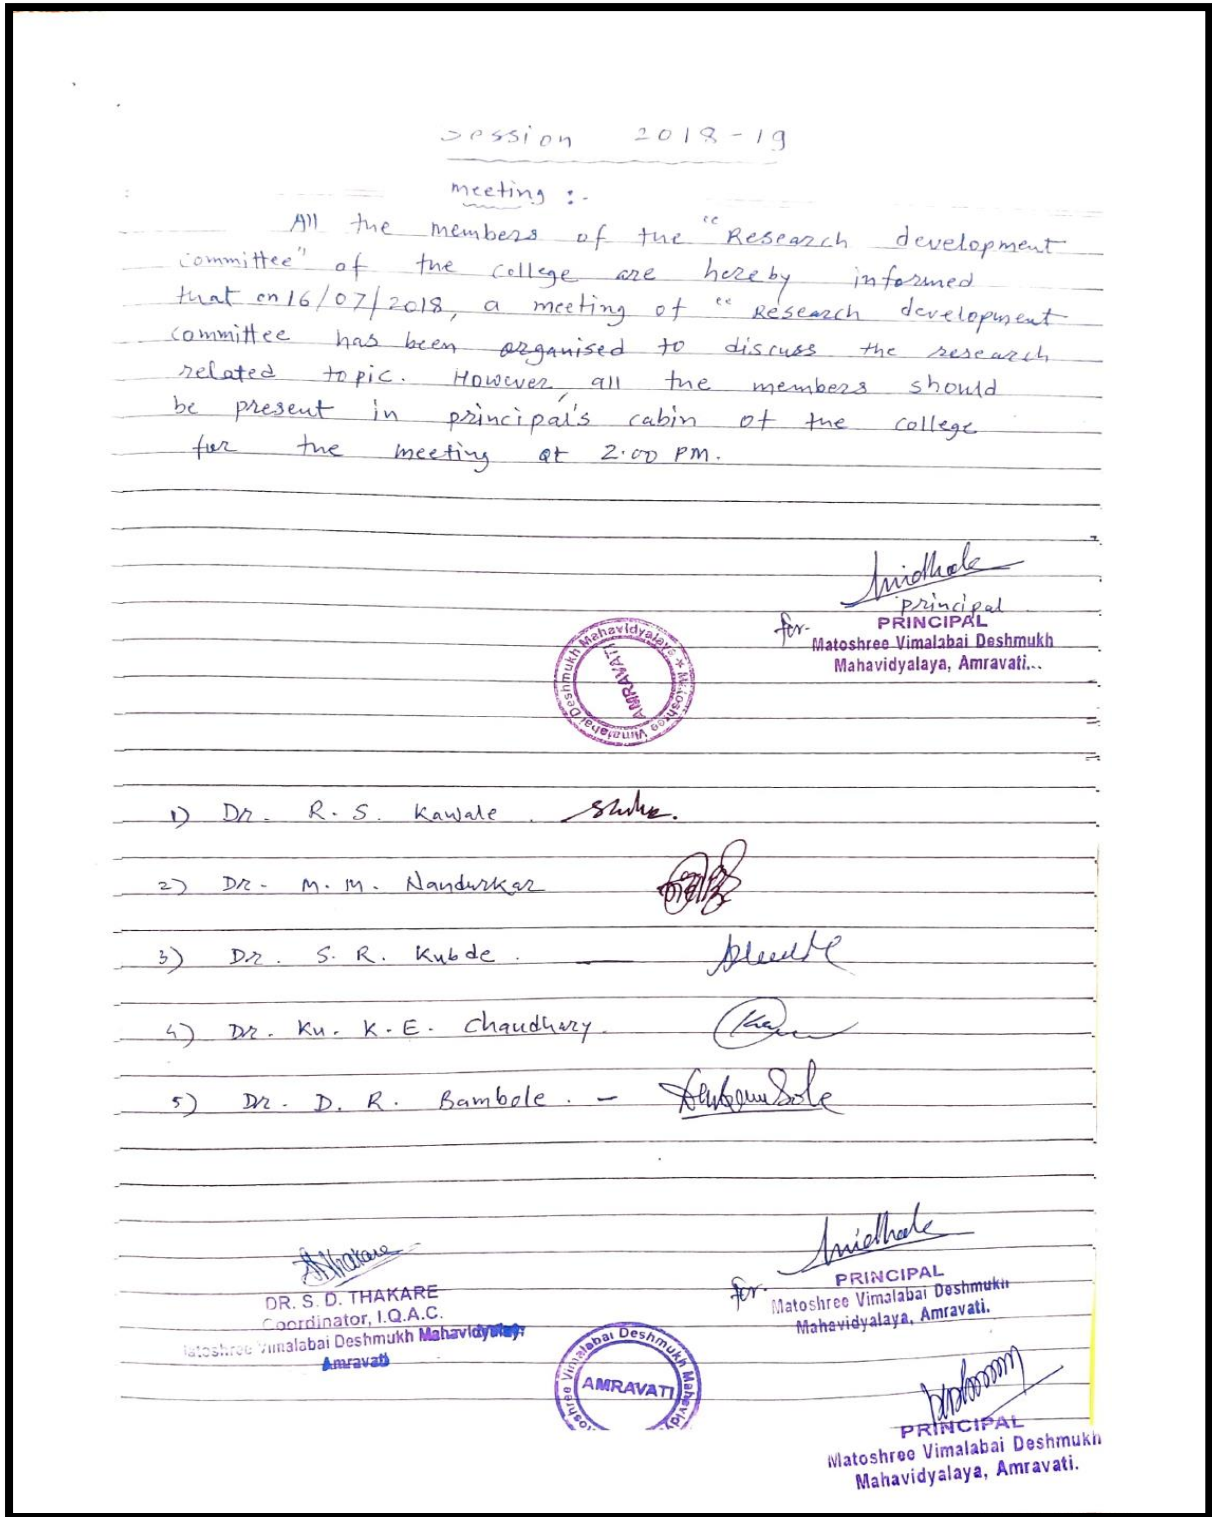 Session 2018-19
meeting :-
All the members of the "Research development
committee" of the college are hereby informed
that on 16/07/2018, a meeting of "Research development
committee has been organised to discuss the research
related topic. However, all the members should
be present in principal's cabin of the college
for the meeting at 2.00 PM.
principal
for- PRINCIPAL
Matoshree Vimalabai Deshmukh
Mahavidyalaya, Amravati...
Matoshree Vimalabai Deshmukh Mahavidyalaya *
AMRAVATI
1) Dr. R. S. Kawale.
2) Dr. M. M. Nandurkar
3) Dr. S. R. Kubde.
4) Dr. Ku. K. E. Chaudhary.
5) Dr. D. R. Bambole. -
DR. S. D. THAKARE
Coordinator, I.Q.A.C.
Matoshree Vimalabai Deshmukh Mahavidyalay,
Amravati
for- PRINCIPAL
Matoshree Vimalabai Deshmukh
Mahavidyalaya, Amravati.
Matoshree Vimalabai Deshmukh Mahavidy
AMRAVATI
PRINCIPAL
Matoshree Vimalabai Deshmukh
Mahavidyalaya, Amravati.